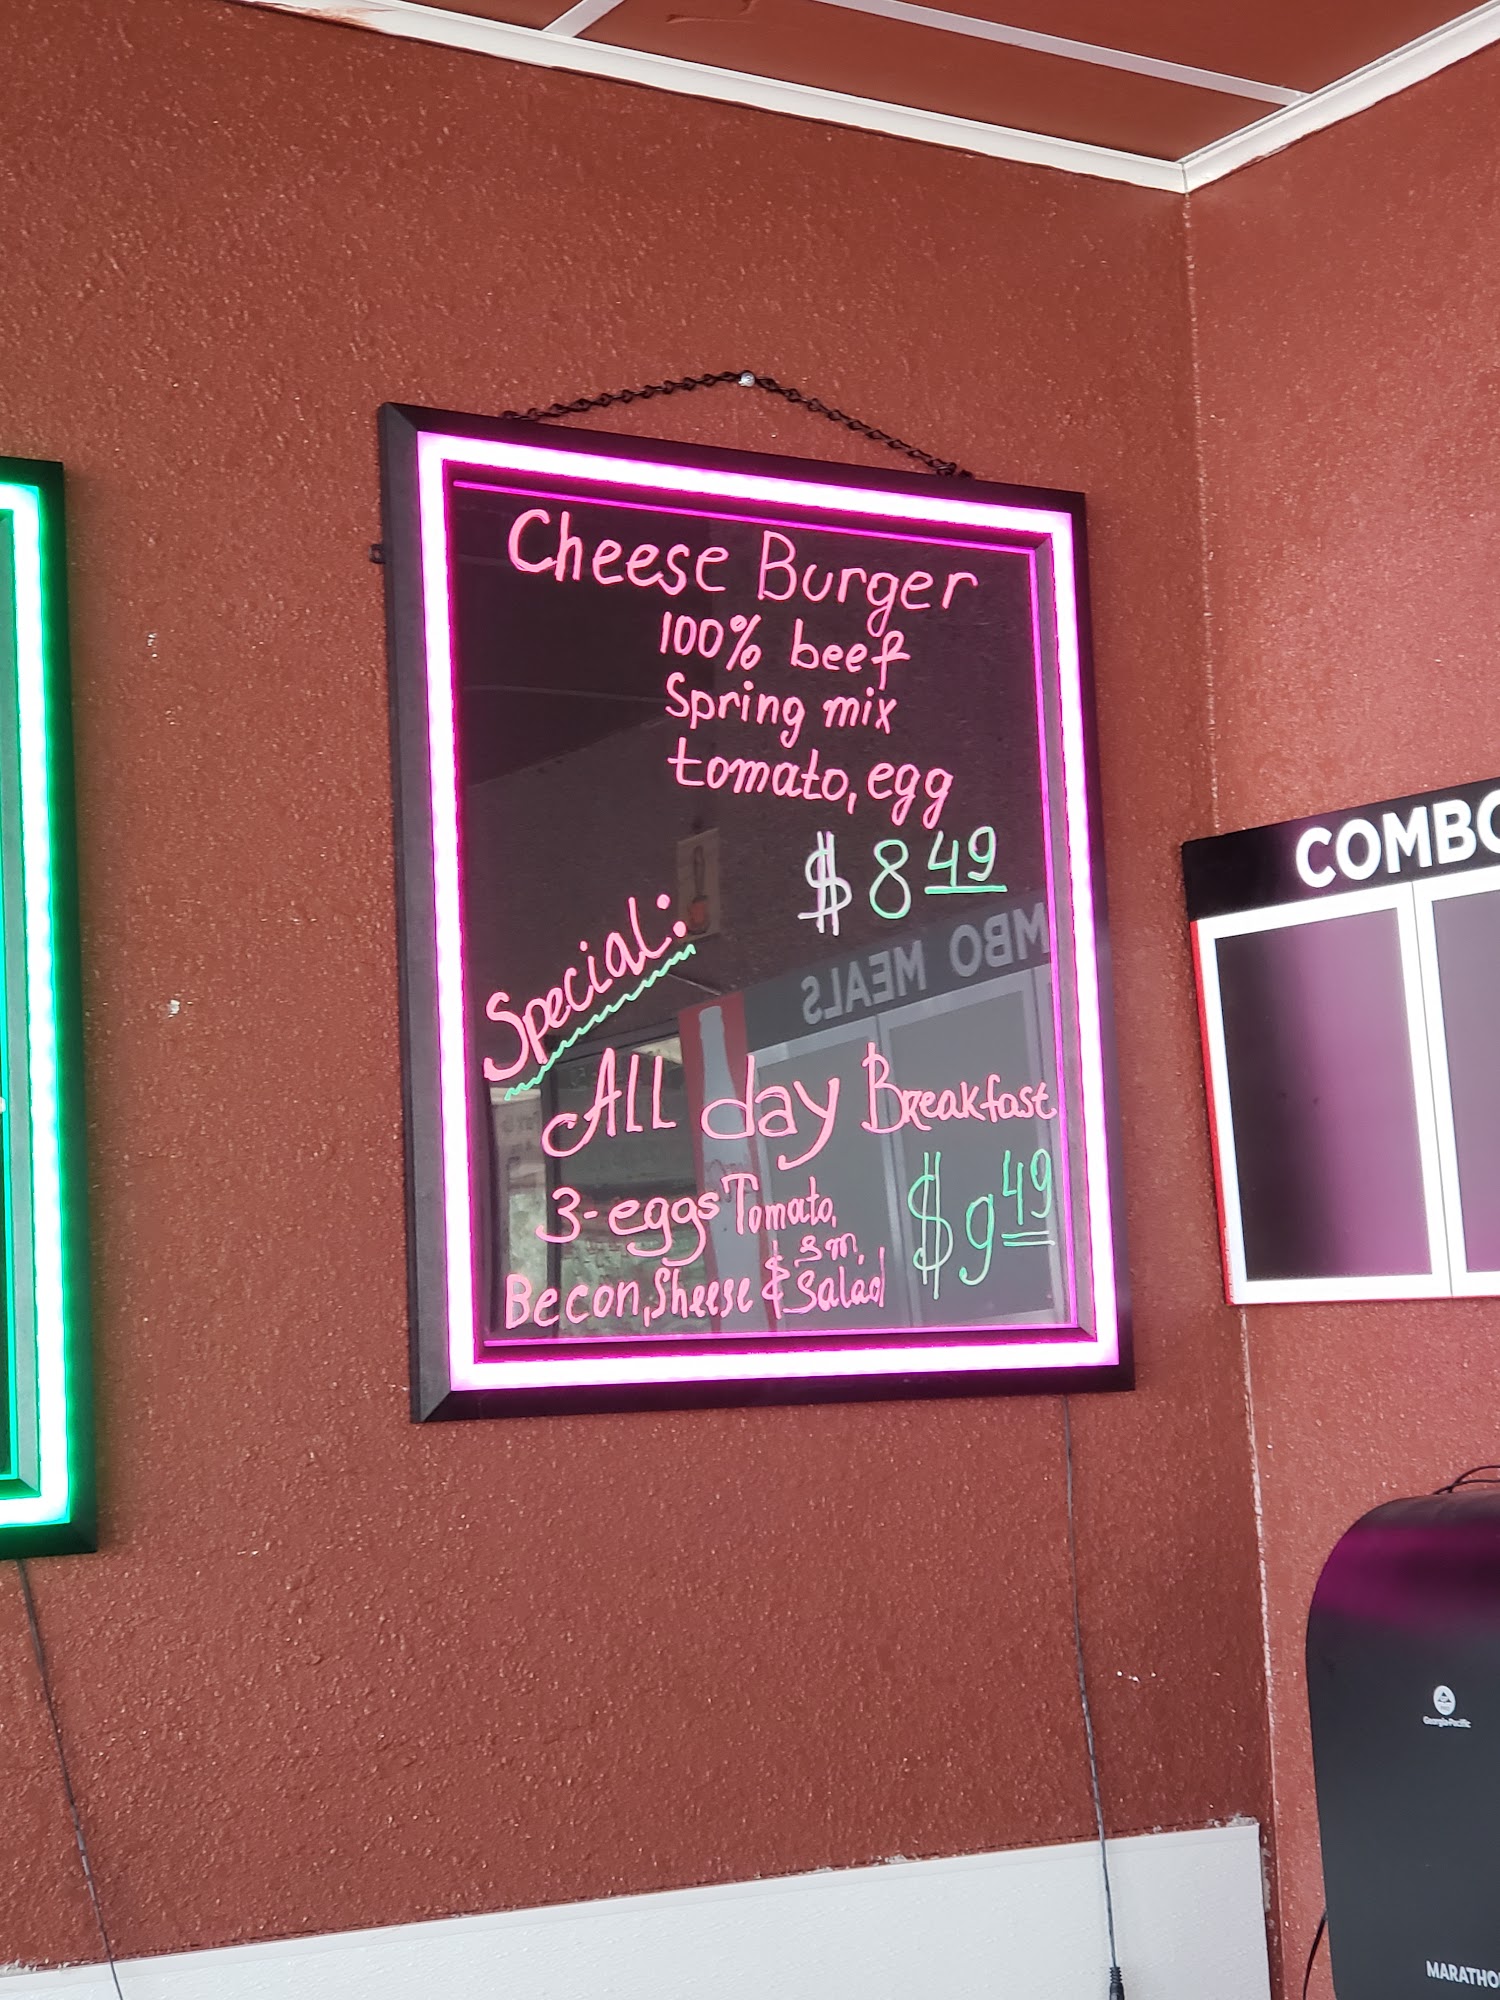 Cheese Burger
100% beef
Spring mix
tomato, egg
$ 8 49
Special:
All day Breakfast
3-eggs Tomato,
$9 49
sm,
Becon, Sheese & Salad
COMBO
MBO MEALS
Georgia-Pacific
MARATHO